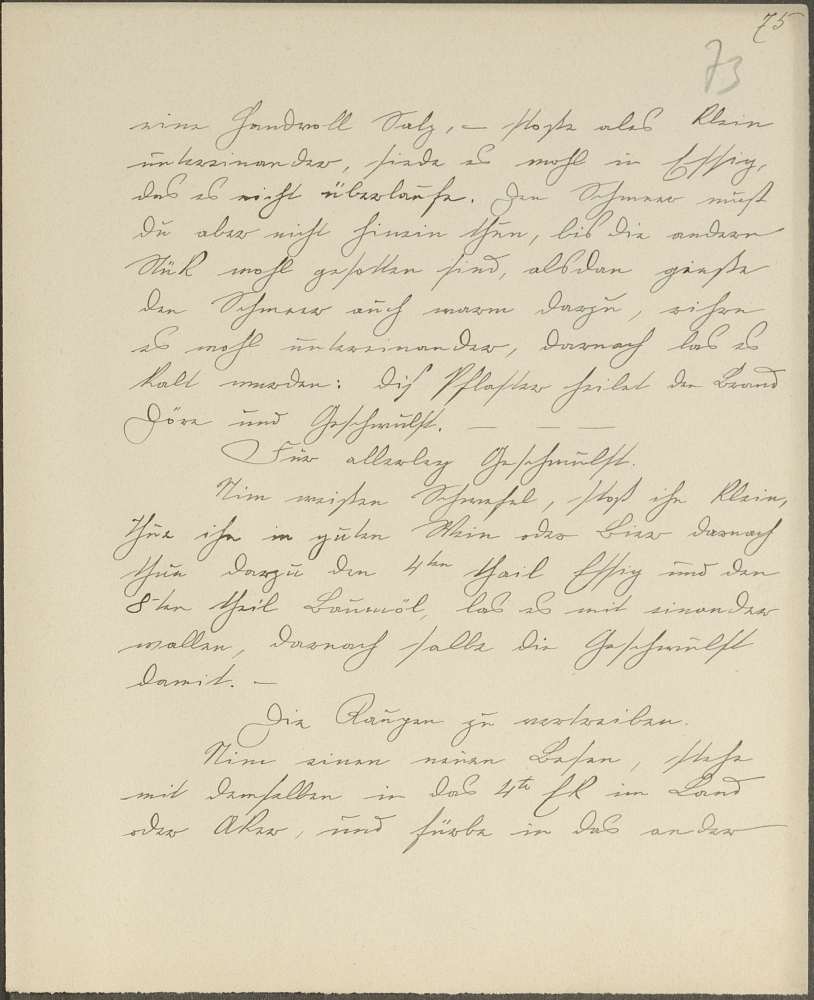 75
73
eine Handvoll Salz, – stoße ales klein
untereinander, siede es wohl in Essig,
das es nicht überlaufe. Den Schmeer must
du aber nicht hinein thun, bis die andern
Stük wohl gesotten sind, alsdan gieße
den Schmeer auch warm darzu, rihre
es wohl untereinander, darnach las es
kalt werden: diß Pflaster heilet den Brand
Döre und Geschwulst. — — —
Für allerley Geschwulst.
Nim weißen Schwefel, stoß ihn klein,
thue ihn in guten Wein oder Bier darnach
thue darzu den 4ten theil Essig und den
8ten theil Baumöl, las es mit einander
wallen, darnach salbe die Geschwulst
damit. –
Die Raupen zu vertreiben.
Nim einen neuen Besen, stehe
mit demselben in das 4te Ek im Land
oder Aker, und fürbe in das ander